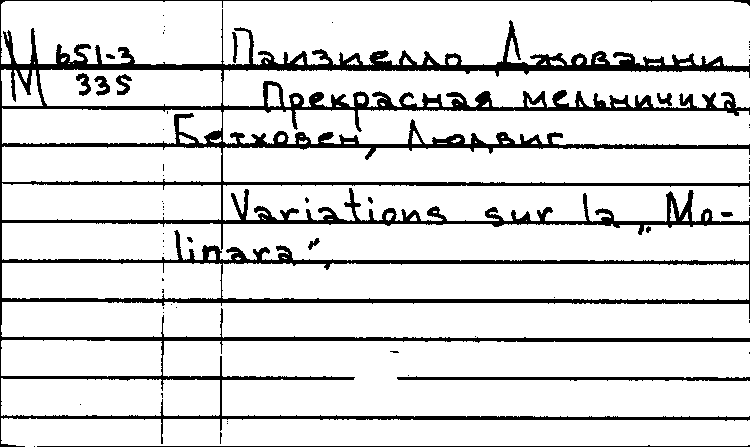 М 651-3 Паизиелло, Джованни
335
Прекрасная мельничиха
Бетховен, Людвиг
Variations sur la „Mo-
linara”,